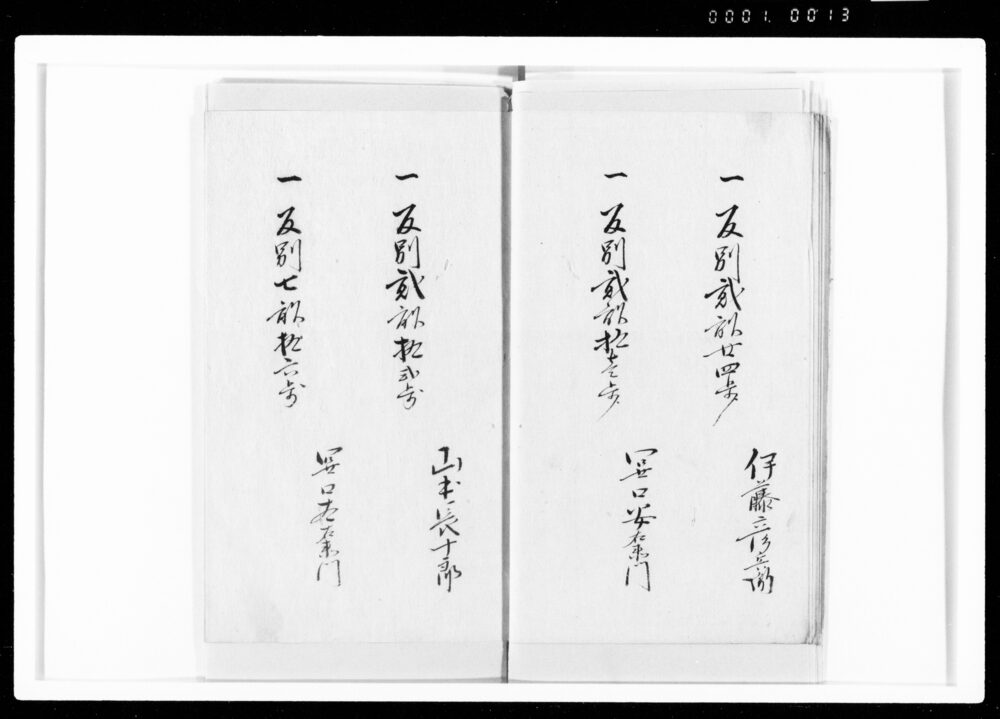 0001.0013
一反別貳畝廿四歩
伊藤彦兵衛
一反別貳畝拾壱歩
関口安右衛門
一反別貳畝拾弐歩
山本長十郎
一反別七畝拾六歩
関口右衛門